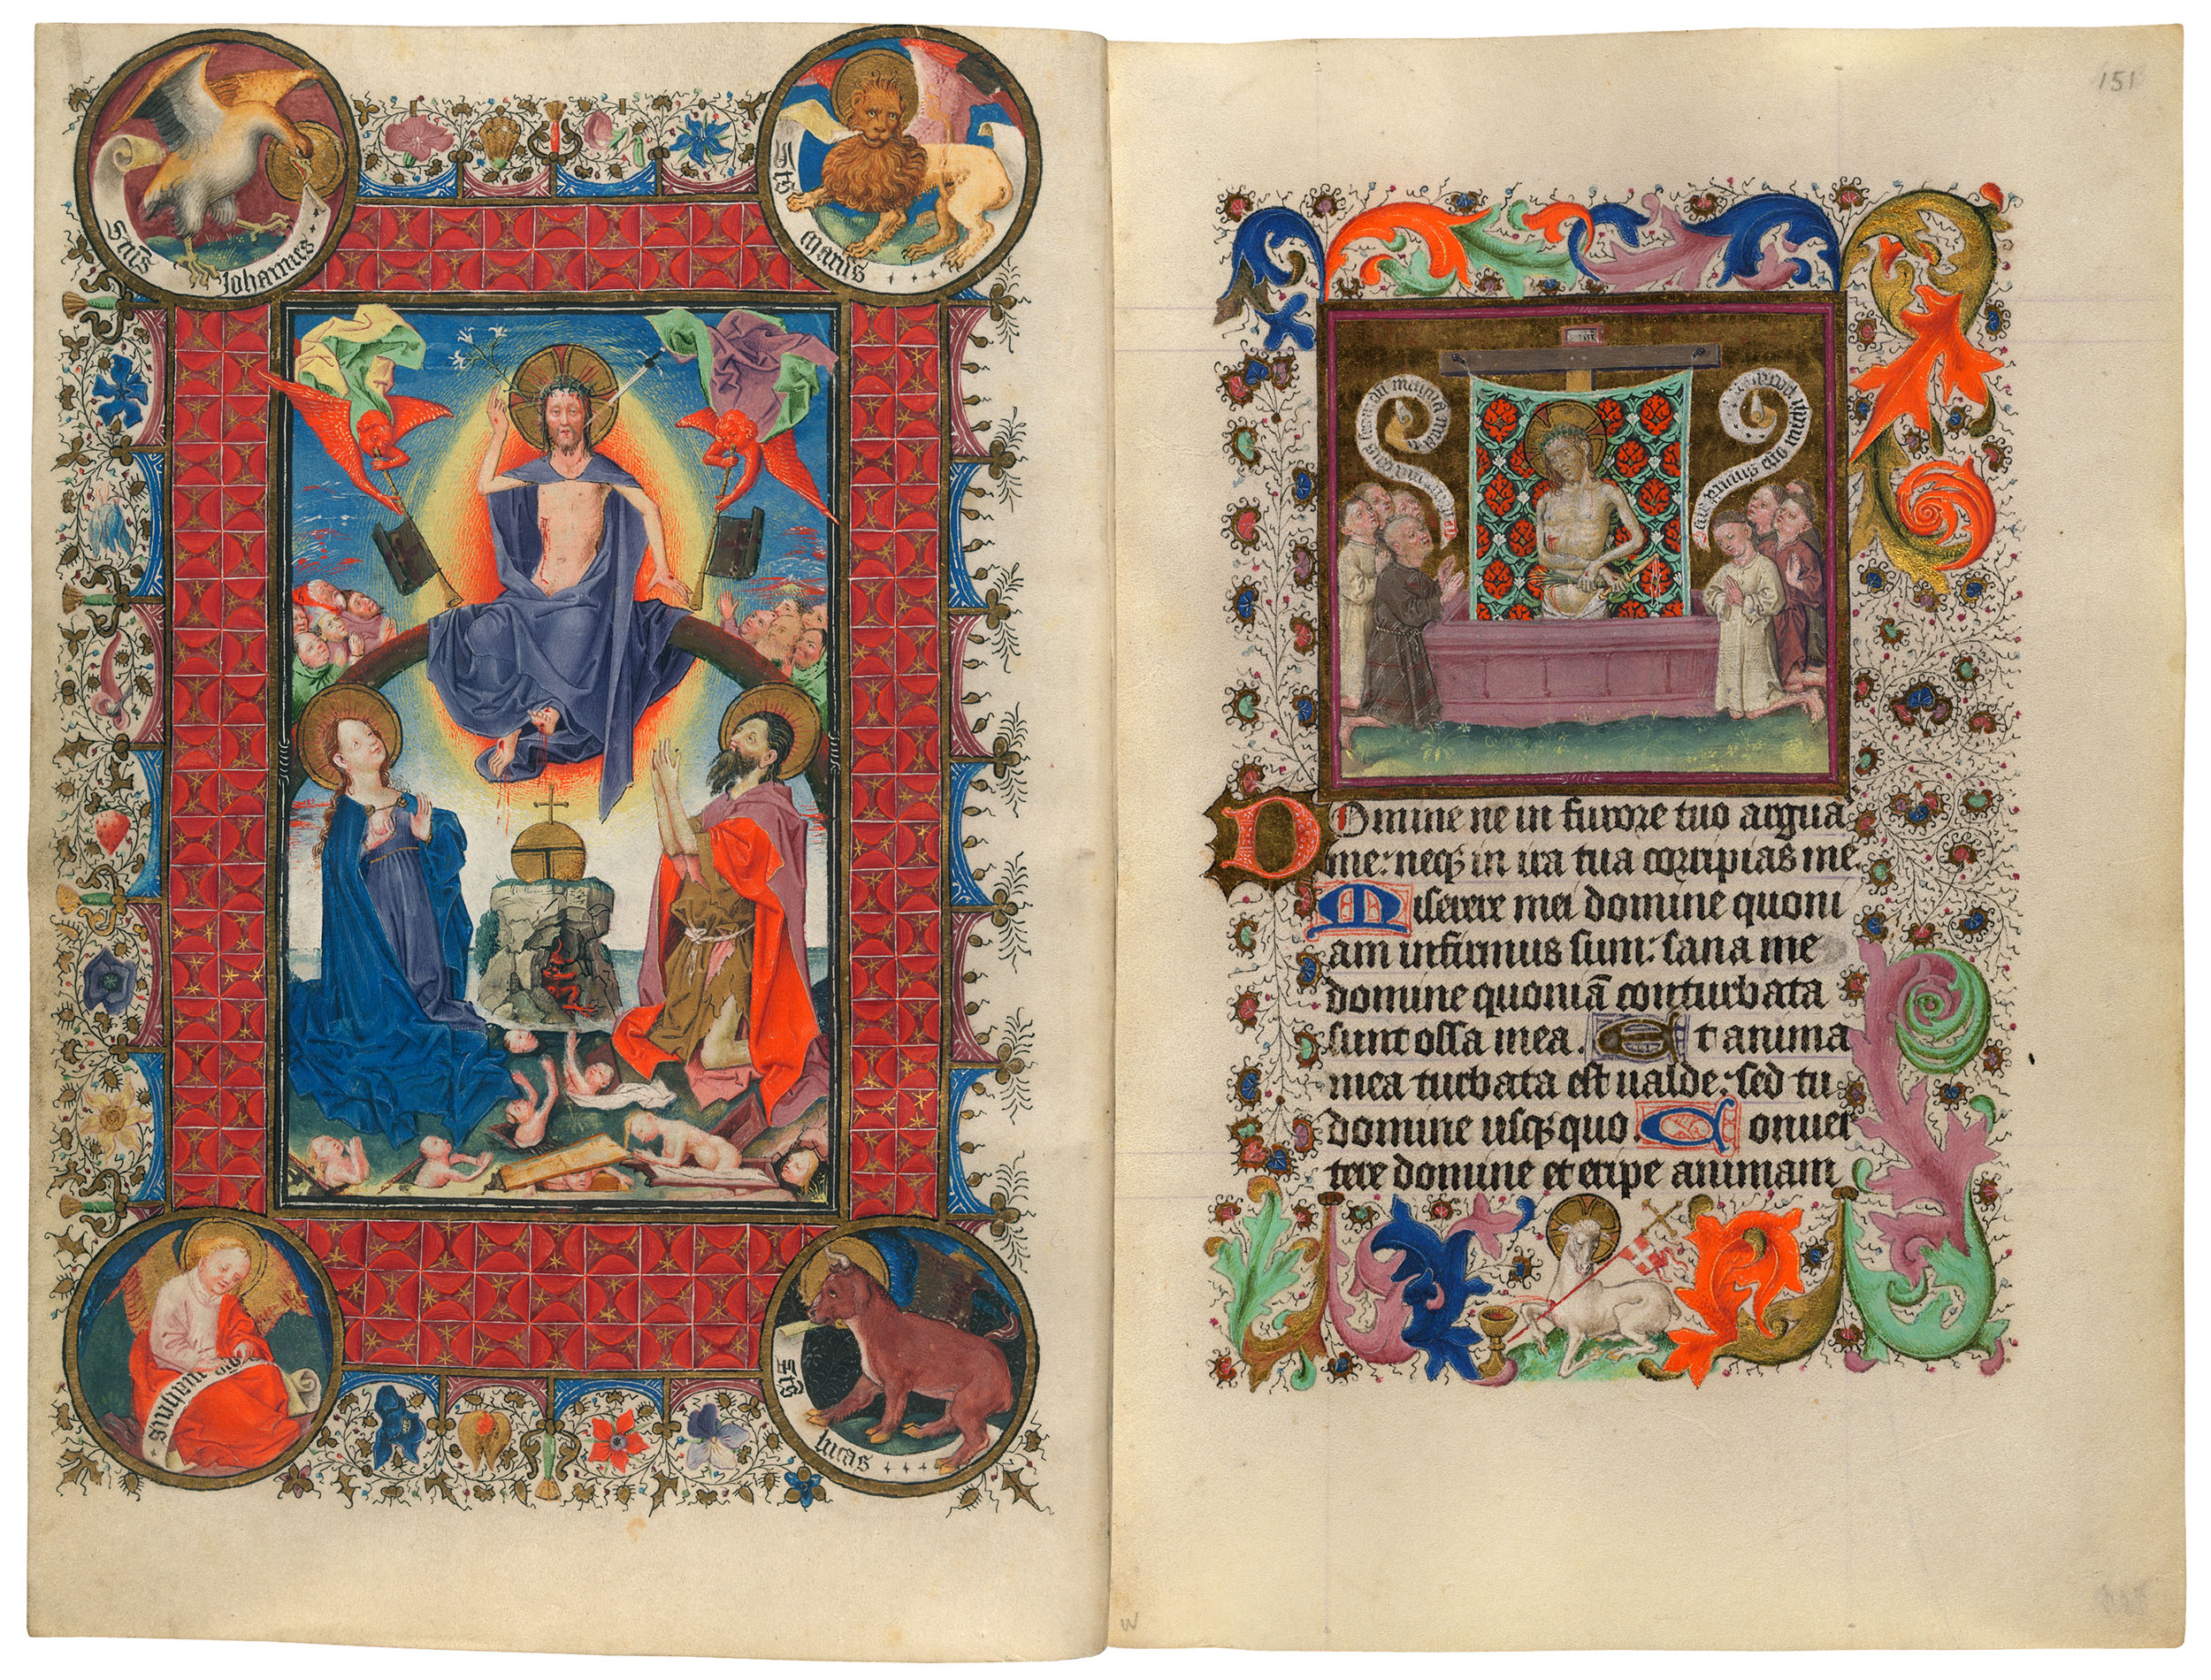 Johannes
Marcus
lucas
151
Domine ne in furore tuo arguā
me: neq in ira tua corripias me
Miserere mei domine quoni
am infirmus sum: sana me
domine quoniā conturbata
sunt ossa mea. Et anima
mea turbata est ualde: sed tu
domine usq quo. Conuer
tere domine et eripe animam
w